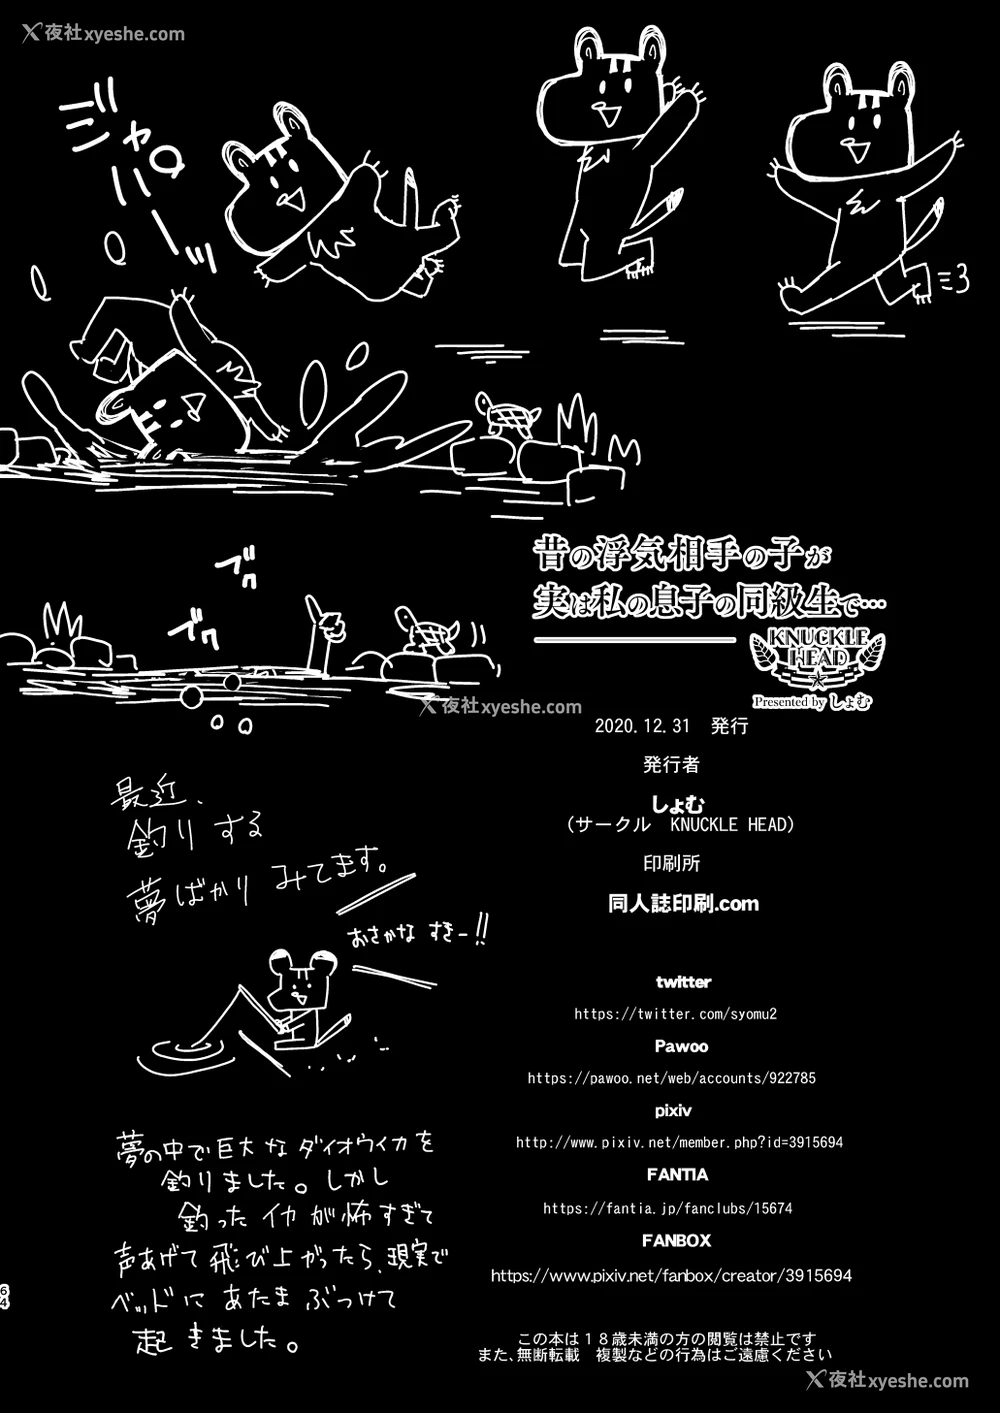 夜社xyeshe.com
ジャバーッ
昔の浮気相手の子が
実は私の息子の同級生で…
KNUCKLE
HEAD
Presented by しょむ
ブク
ブク
夜社xyeshe.com
2020.12.31　発行
発行者
しょむ
（サークル　KNUCKLE HEAD）
印刷所
同人誌印刷.com
twitter
https://twitter.com/syomu2
Pawoo
https://pawoo.net/web/accounts/922785
pixiv
http://www.pixiv.net/member.php?id=3915694
FANTIA
https://fantia.jp/fanclubs/15674
FANBOX
https://www.pixiv.net/fanbox/creator/3915694
この本は１８歳未満の方の閲覧は禁止です
また、無断転載　複製などの行為はご遠慮ください
最近、
釣りする
夢ばかり みてます。
おさかな すきー!!
夢の中で巨大なダイオウイカを
釣りました。しかし
釣ったイカが怖すぎて
声あげて飛び上がったら、現実で
ベッドに あたまぶつけて
起きました。
64
夜社xyeshe.com